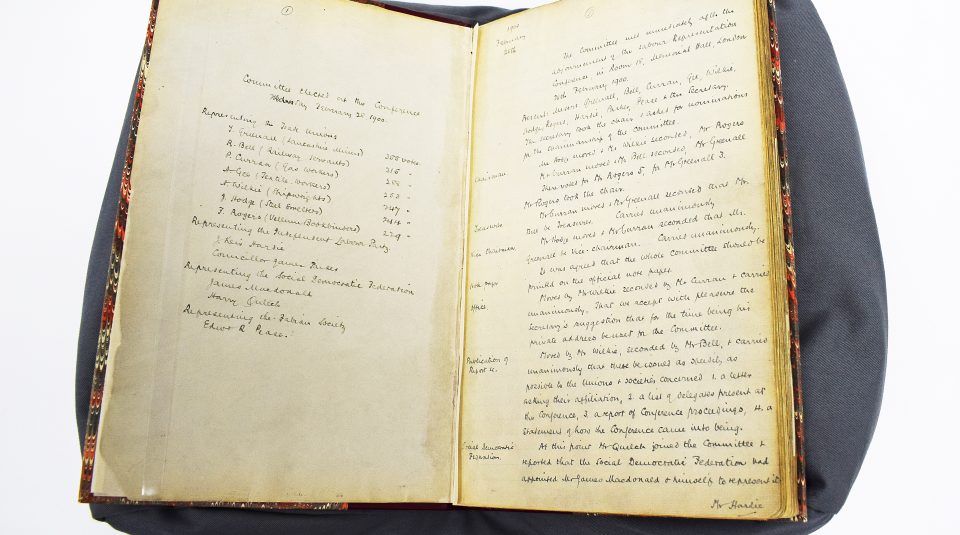 1
Committee elected at the Conference
February 28 1900.
Representing the Trade Unions
T. Greenall (Lancashire Miners) votes
R. Bell (Railway Servants)
P. Curran (Gas Workers)
A Gee (Textile Workers)
A Wilkie (Shipwrights)
J. Hodge (Steel Smelters) 247 "
F. Rogers (Vellum Bookbinders)
Representing the Independent Labour Party
J. Keir Hardie
Councillor James Parker
Representing the Social Democratic Federation
James Macdonald
Harry Quelch
Representing the Fabian Society
Edwd R Pease.
2
1900
February
28th
The Committee met immediately after the
adjournment of the Labour Representation
Conference in Room 15, Memorial Hall, London
28th February 1900.
Present: Messrs Greenall, Bell, Curran, Gee, Wilkie,
Hodge, Rogers, Hardie, Parker, Pease & the Secretary.
The Secretary took the chair & asked for nominations
for the chairmanship of the committee.
Chairman.
Mr Hodge moved & Mr Wilkie seconded, Mr Rogers
Mr Curran moved & Mr Bell seconded, Mr Greenall
There voted for Mr Rogers 5, for Mr Greenall 3.
Mr Rogers took the chair.
Treasurer
Mr Curran moved & Mr Greenall seconded that Mr
be Treasurer. Carried unanimously
Vice Chairman.
Mr Hodge moved & Mr Curran seconded that Mr.
Greenall be Vice-chairman. Carried unanimously.
Note Paper
It was agreed that the whole committee should be
printed on the official note paper.
Office.
Moved by Mr Wilkie seconded by Mr Curran & carried
unanimously, That we accept with pleasure the
Secretary's suggestion that for the time being his
private address be used for the Committee.
Publication of
Report &c.
Moved by Mr Wilkie, seconded by Mr Bell, & carried
unanimously that there be issued as speedily as
possible to the Unions & societies concerned 1. a letter
asking their affiliation, 2. a list of delegates present at
the Conference, 3. a report of Conference proceedings, 4. a
statement of how the Conference came into being.
Social Democratic
Federation.
At this point Mr Quelch joined the Committee &
reported that the Social Democratic Federation had
appointed Mr James Macdonald & himself to represent it
Mr Hardie